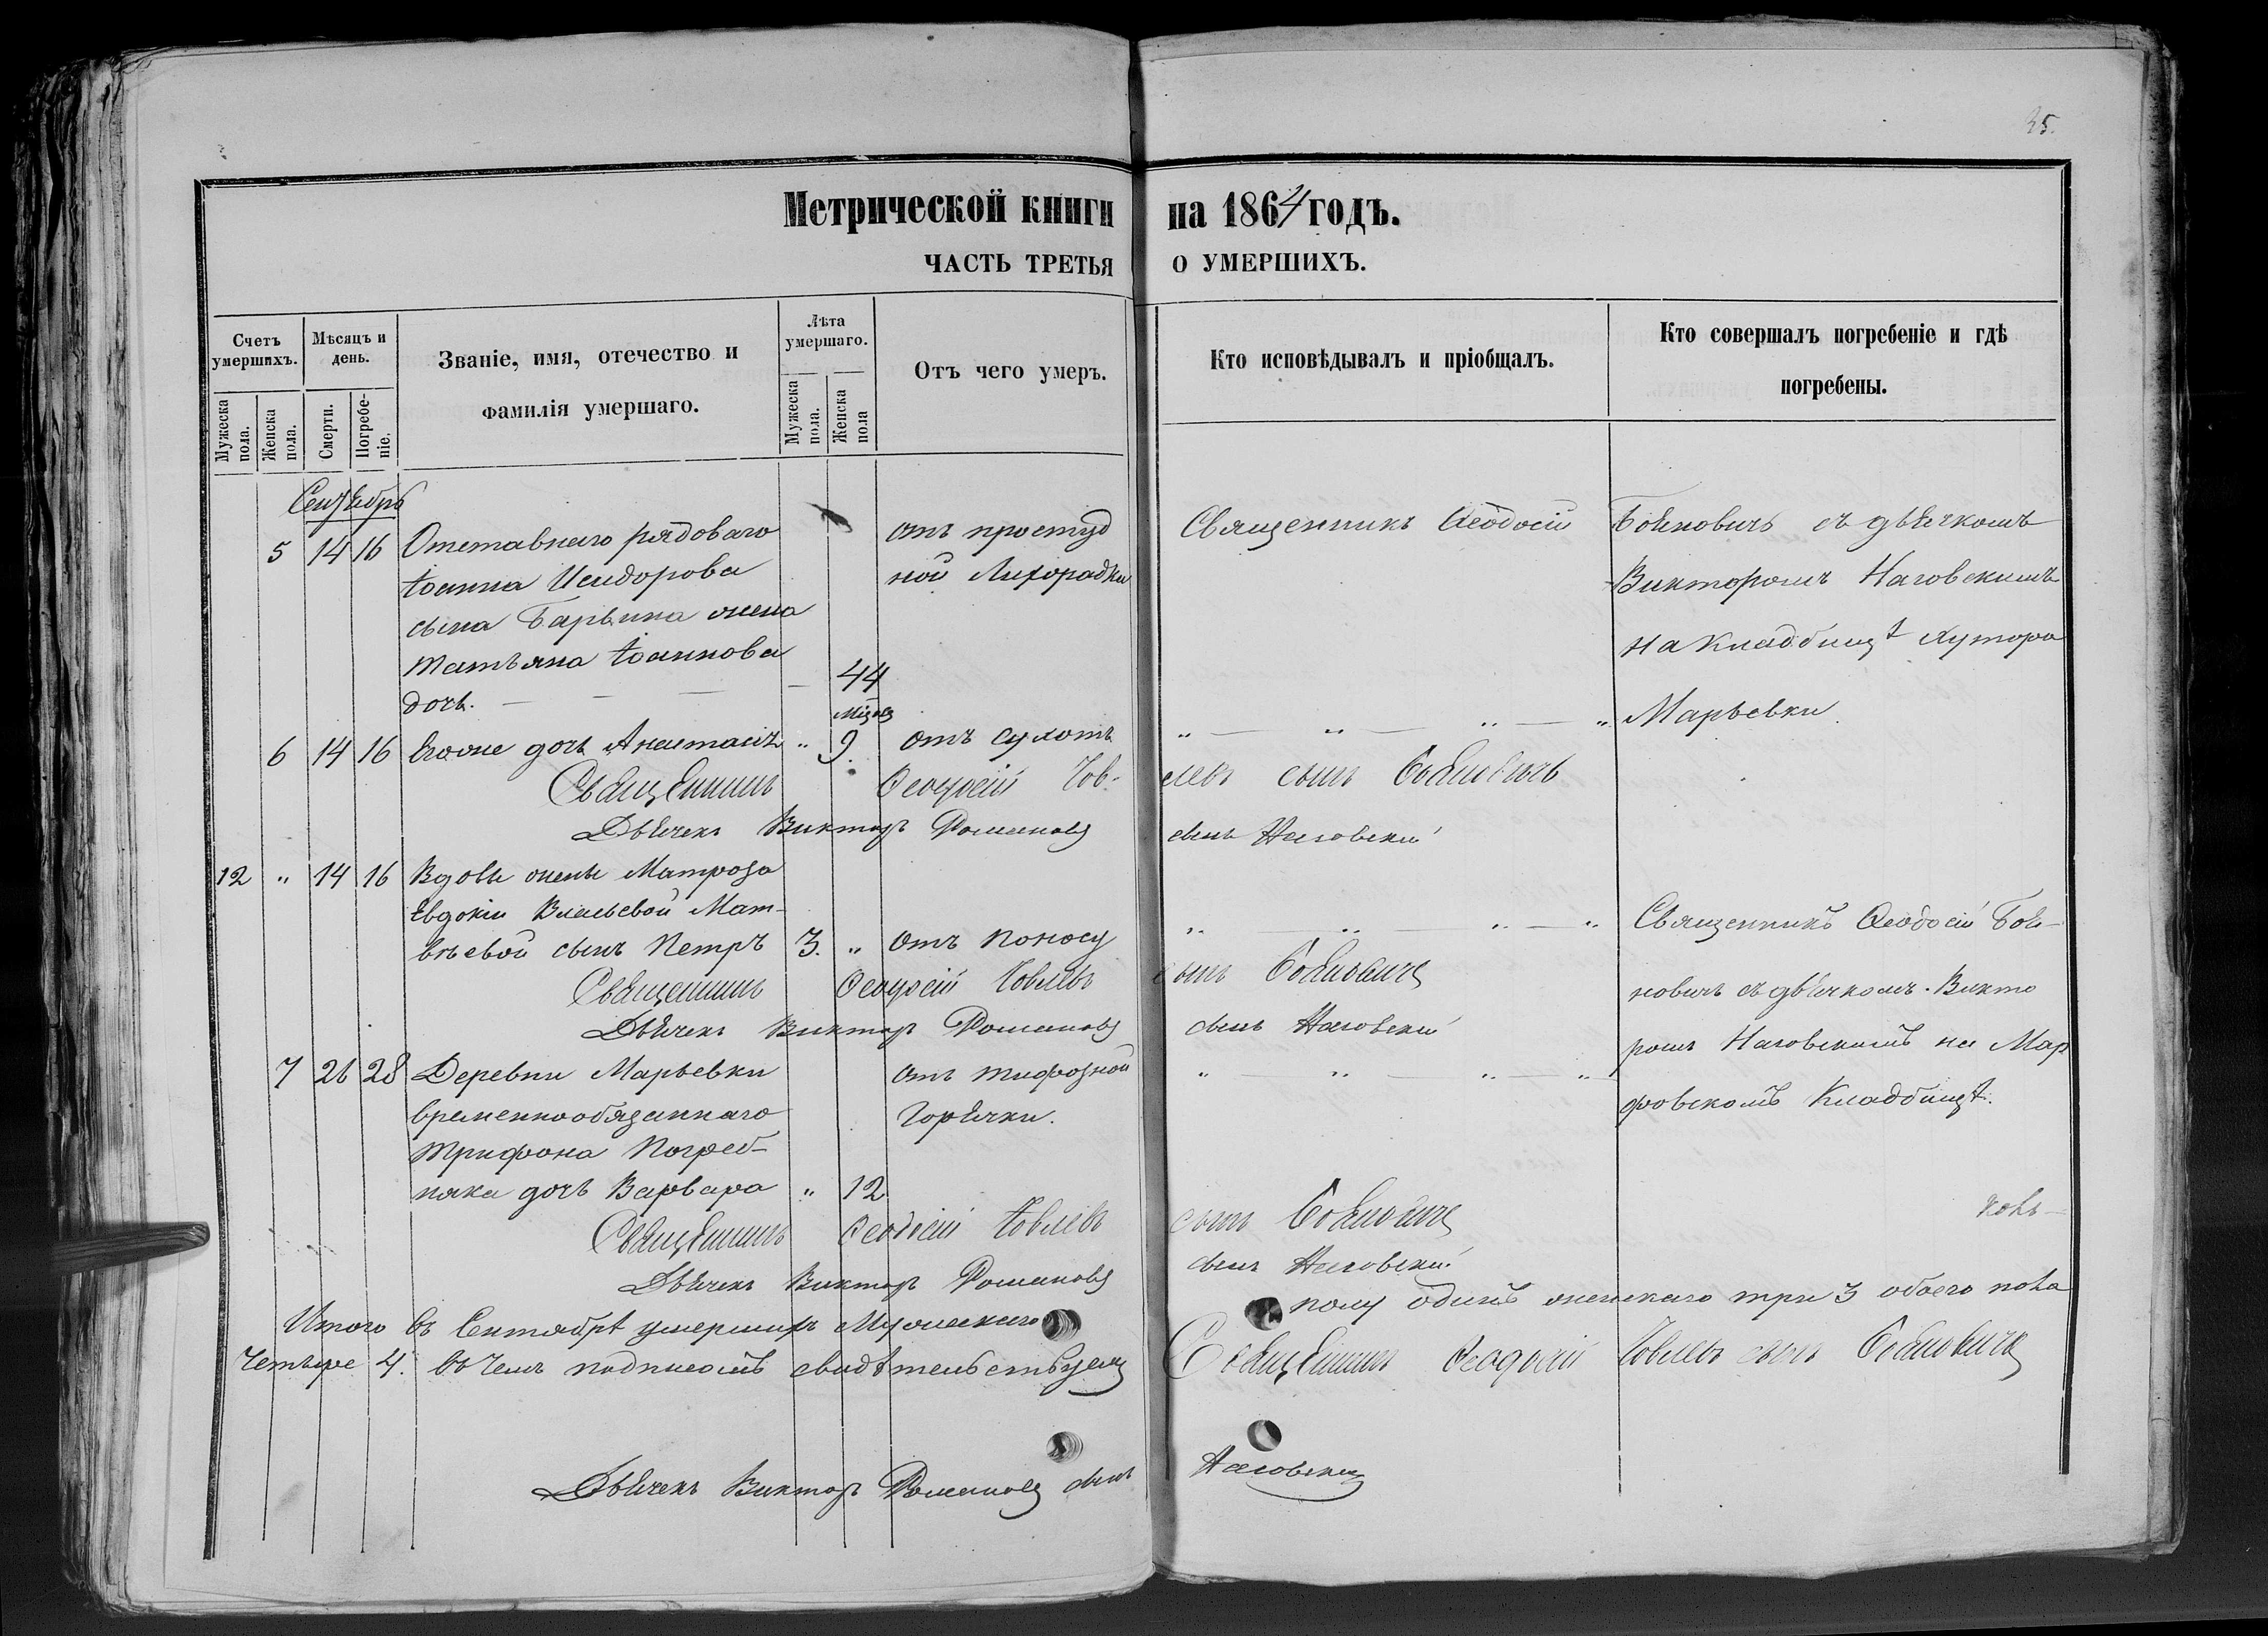 35.
Метрической книги на 1864 годъ.
ЧАСТЬ ТРЕТЬЯ О УМЕРШИХЪ.
Счетъ умершихъ.
Мужеска пола.
Женска пола.
Мѣсяцъ и день.
Смерти.
Погребеніе.
Званіе, имя, отечество и фамилія умершаго.
Лѣта умершаго.
Мужеска пола.
Женска пола
Отъ чего умеръ.
Кто исповѣдывалъ и пріобщалъ.
Кто совершалъ погребеніе и гдѣ погребены.
Сентябрь
5 14 16 Отставнаго рядоваго отъ простуд Священникъ Ѳеодосій Бояновичъ съ дьячкомъ
Іоанна Исидорова ной Лихорадки Викторомъ Наговскимъ
сына жена на Кладбищѣ хутора
Татьяна Іоаннова 44 Марьевки.
дочь.
Мѣсяц
6 14 16 Егоже дочь Анастасія " 9. отъ сухотъ " " " "
Священникъ Ѳеодосій Іовлевъ сынъ Бояновичъ
Дьячекъ Викторъ Романовъ сынъ Наговскій
12 " 14 16 Вдовы жены Матроза
Евдокіи Власьевой Мат-
вѣевой сынъ Петръ 3. " отъ поносу " " " " Священникъ Ѳеодосій Боя-
Священникъ Ѳеодосій Іовлевъ сынъ Бояновичъ новичъ съ дьячкомъ Викто
Дьячекъ Викторъ Романовъ сынъ Наговскій ромъ Наговскимъ на Мар
7 26 28 Деревни Марьевки отъ тифозной " " " " фовскомъ Кладбищѣ.
временнообязаннаго Горячки.
Трифона Погреб-
няка дочь Варвара " 12.
Священникъ Ѳеодосій Іовлевъ сынъ Бояновичъ
Дьячекъ Викторъ Романовъ сынъ Наговскій.
Итого въ Сентябрѣ умершихъ Мужескаго полу одинъ женскаго три 3 обоего пола
четыре 4. въ чемъ подписомъ свидѣтельствуемъ Священникъ Ѳеодосій Іовлевъ сынъ Бояновичъ
Дьячекъ Викторъ Романовъ сынъ Наговскій